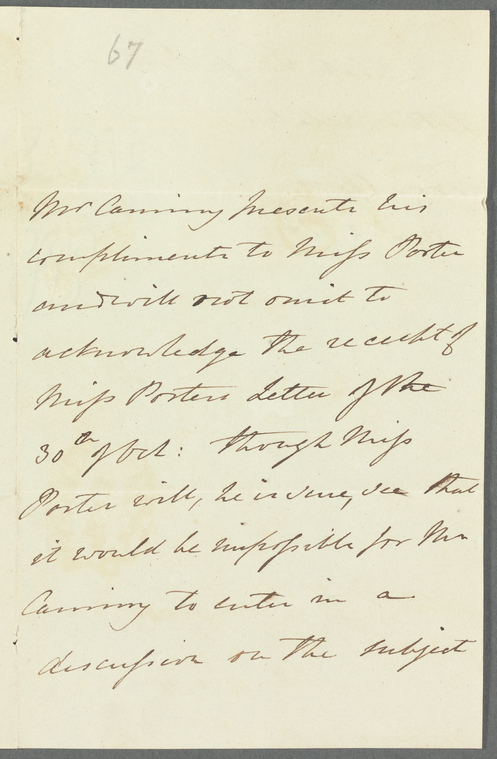 67
Mr Canning presents his
compliments to Miss Porter
and will not omit to
acknowledge the receipt of
Miss Porters Letter of the
30th of Oct: though Miss
Porter will, he is sure, see that
it would be impossible for Mr
Canning to enter in a
discussion on the subject